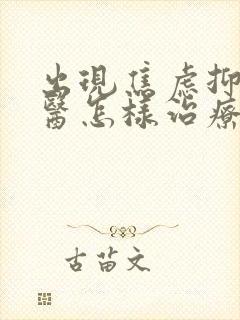 出現焦慮抑
醫怎樣治療
古苗文